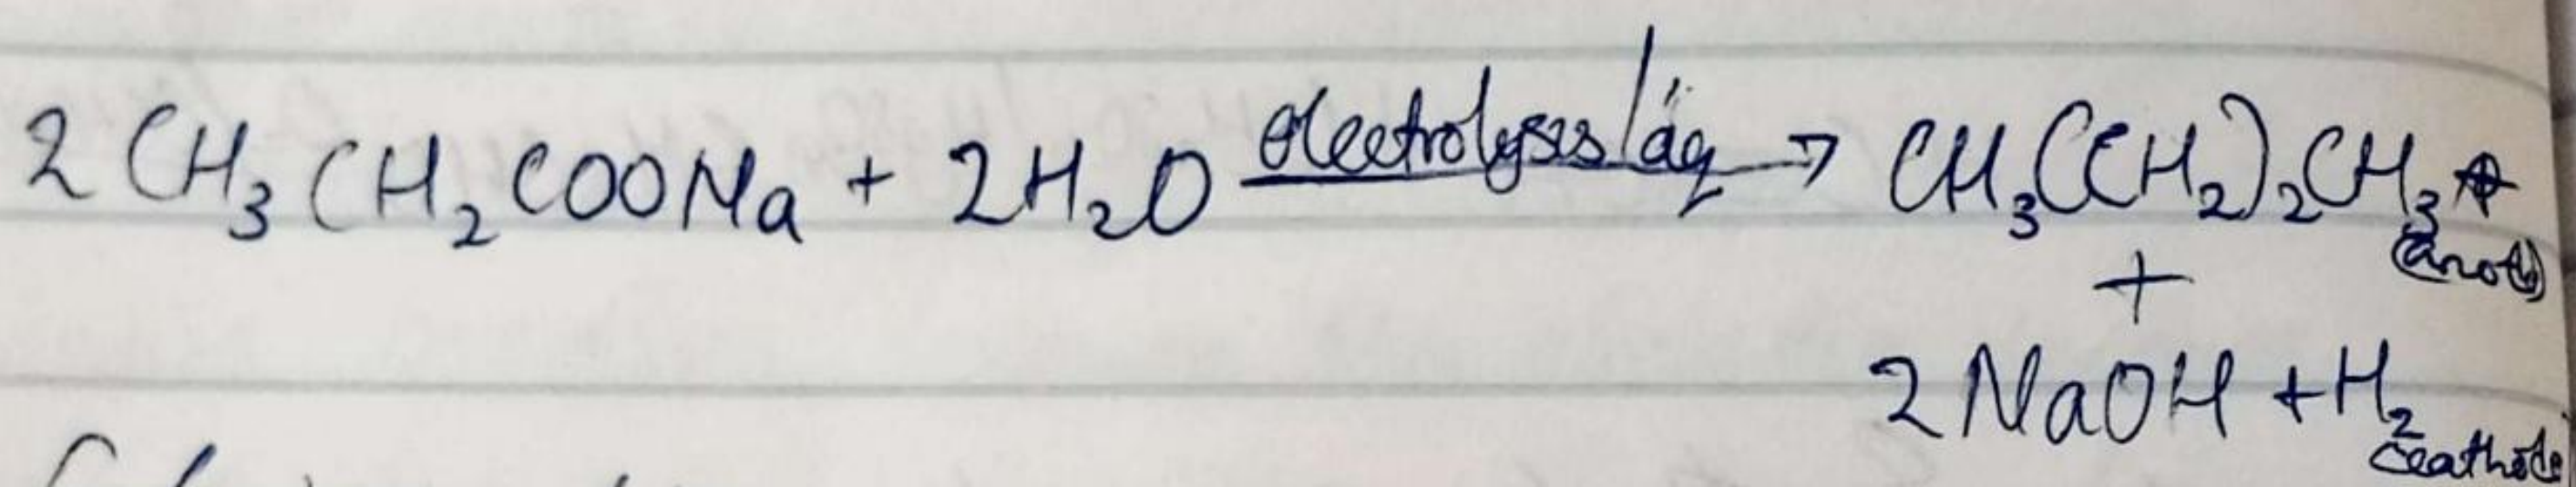 2 CH₃CH₂COONa + 2H₂O electrolysis/aq → CH₃(CH₂)₂CH₃
(anode)
+
2 NaOH + H₂
cathode